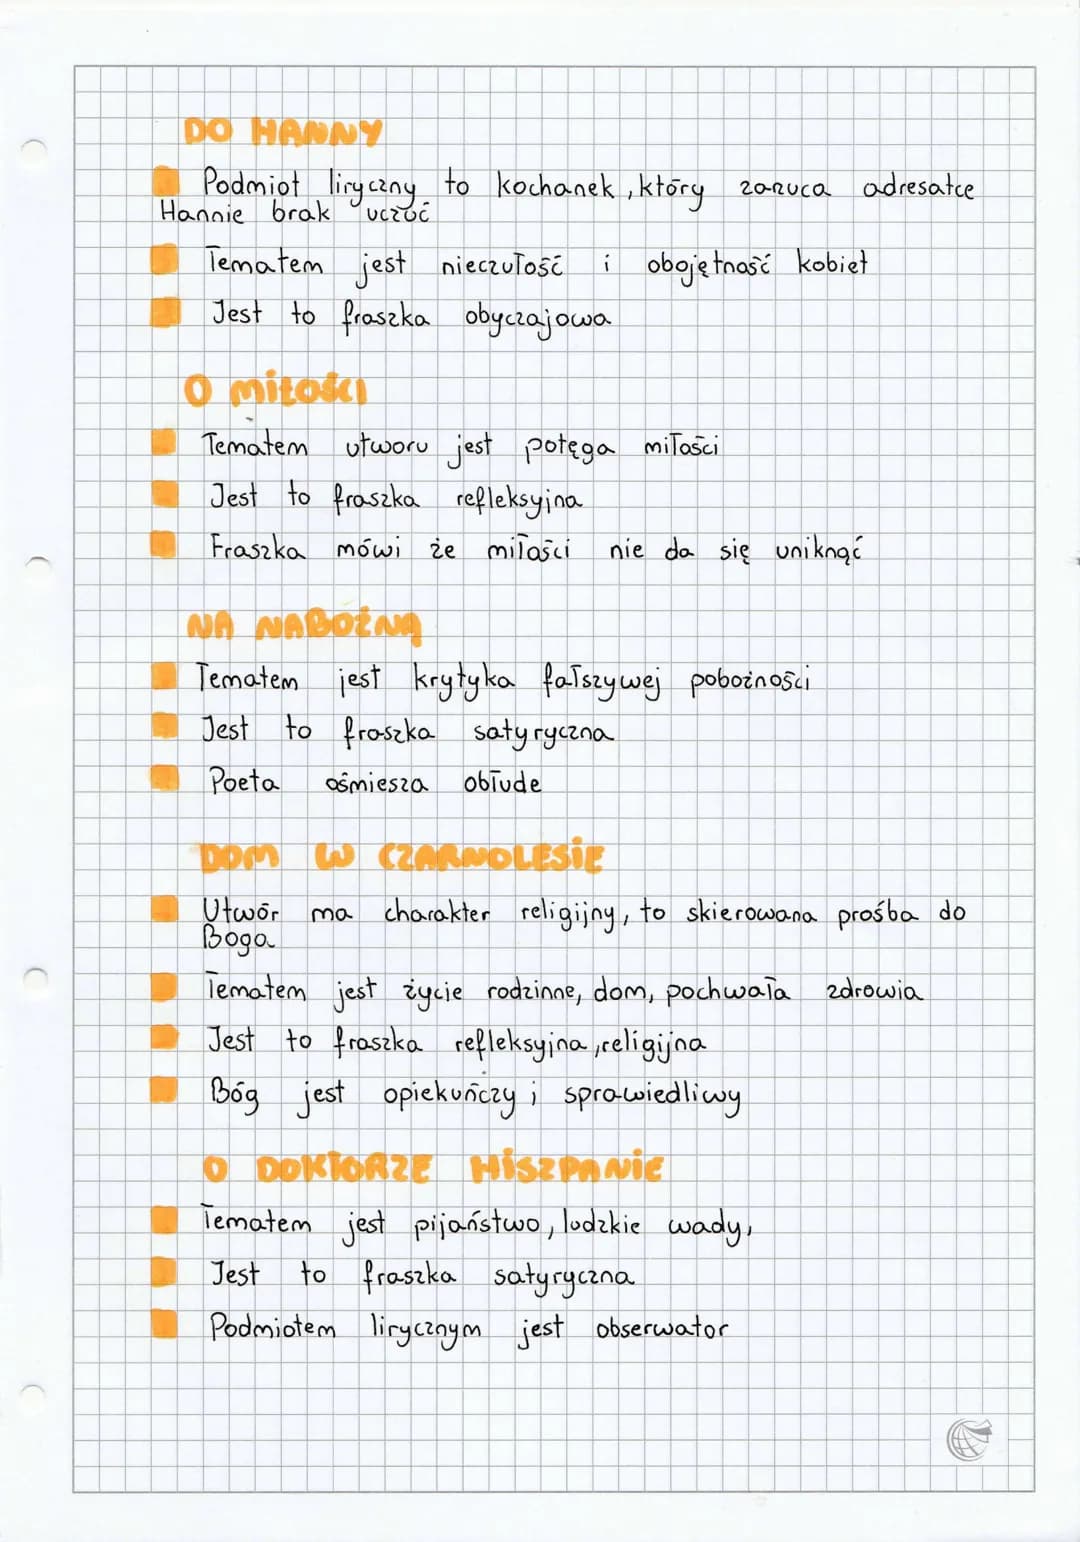 DO HANNY
Podmiot liryczny to kochanek, który zarzuca adresatce
Hannie brak uczuć
Tematem jest nieczułość i obojętność kobiet
Jest to fraszka obyczajowa
O miłości
Tematem utworu jest potęga miłości
Jest to fraszka refleksyjna
Fraszka mówi że miłości nie da się uniknąć
NA NABOŻNĄ
Tematem jest krytyka fałszywej pobożności
Jest to fraszka satyryczna
Poeta ośmiesza obłude
DOM W CZARNOLESIE
Utwór ma charakter religijny, to skierowana prośba do
Boga
Tematem jest życie rodzinne, dom, pochwała zdrowia
Jest to fraszka refleksyjna, religijna
Bóg jest opiekuńczy i sprawiedliwy
O DOKTORZE HISZPANIE
Tematem jest pijaństwo, ludzkie wady,
Jest to fraszka satyryczna
Podmiotem lirycznym jest obserwator